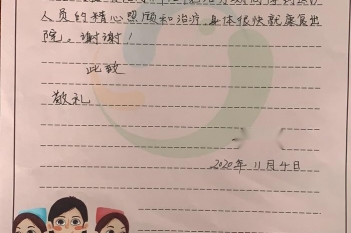 人员的精心照顾和治疗,身体很快就康复出
院。谢谢!
此致
敬礼
2020年11月4日